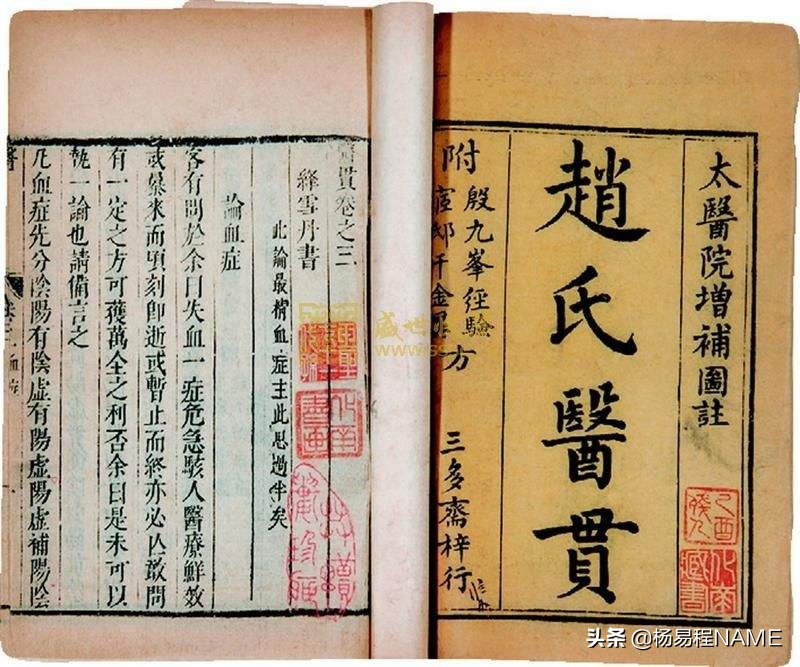 太醫院增補圖註
趙氏醫貫
附殷九峯經驗
方
三多齋梓行
醫貫卷之三
絳雪丹書
此論最精血症主此思過半矣
論血症
客有問於余曰失血一症危急駭人醫療鮮效
或暴來而頃刻即逝或暫止而終亦必亡敢問
有一定之方可獲萬全之利否余曰是未可以
執一論也請備言之
凡血症先分陰陽有陰虛有陽虛陽虛補陽陰
盛世
www.s
头条 @杨易程NAME